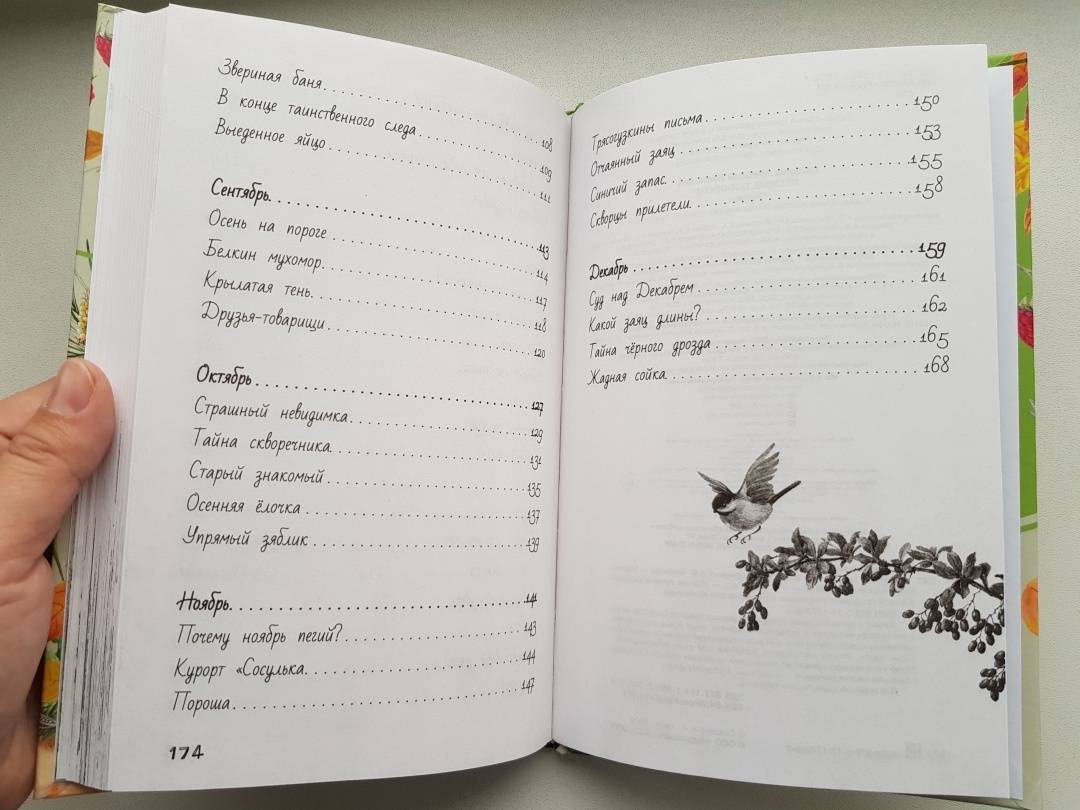 Звериная баня. 108
В конце таинственного следа 109
Выеденное яйцо 111
Сентябрь. 113
Осень на пороге 114
Белкин мухомор. 117
Крылатая тень. 118
Друзья-товарищи 120
Октябрь 127
Страшный невидимка. 129
Тайна скворечника. 131
Старый знакомый 135
Осенняя ёлочка 137
Упрямый зяблик 139
Ноябрь. 141
Почему ноябрь пегий? 143
Курорт «Сосулька. 144
Пороша 147
174
Трясогузкины письма 150
Отчаянный заяц 153
Синичий запас. 155
Скворцы прилетели. 158
Декабрь 159
Суд над Декабрем 161
Какой заяц длины? 162
Тайна чёрного дрозда 165
Жадная сойка. 168